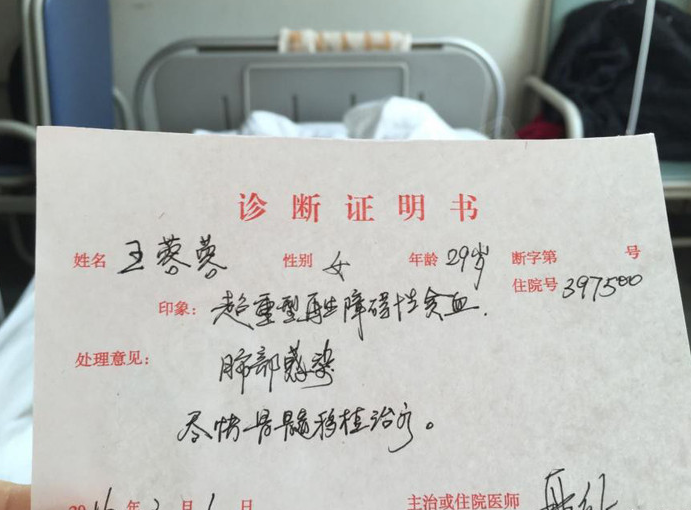 诊断证明书
姓名 王蓉蓉 性别 女 年龄 29岁 断字第 号
住院号 397500
印象: 超重型再生障碍性贫血.
处理意见: 肺部感染
尽快骨髓移植治疗。
年 月 日 主治或住院医师